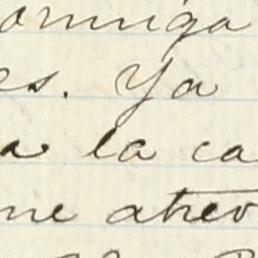 omniga
es. Ya
a la ca
me atrev